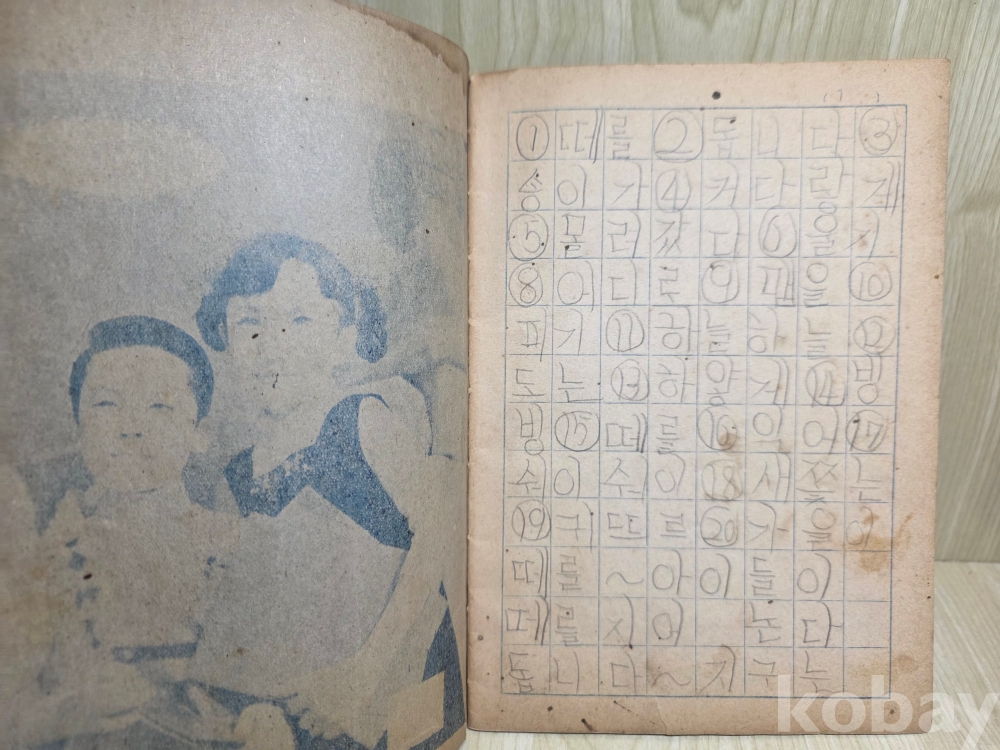 ① 떼를 ② 돕니다 ③
송이가 ④ 커다랑게
⑤ 몰려갔다 ⑥ 울지
⑧ 아디로 ⑨ 맴을 ⑩
피기 ⑪ 하늘하늘 ⑫
도는 ⑬ 하얗게 ⑭ 빙
빙 ⑮ 떼를 ⑯ 익어 ⑰
쉬이쉬이 ⑱ 새쫓는
⑲ 귀뚜르 ⑳ 가을이
떼를~아이들이
떼를지어 논다
돕니다~지구는
kobay